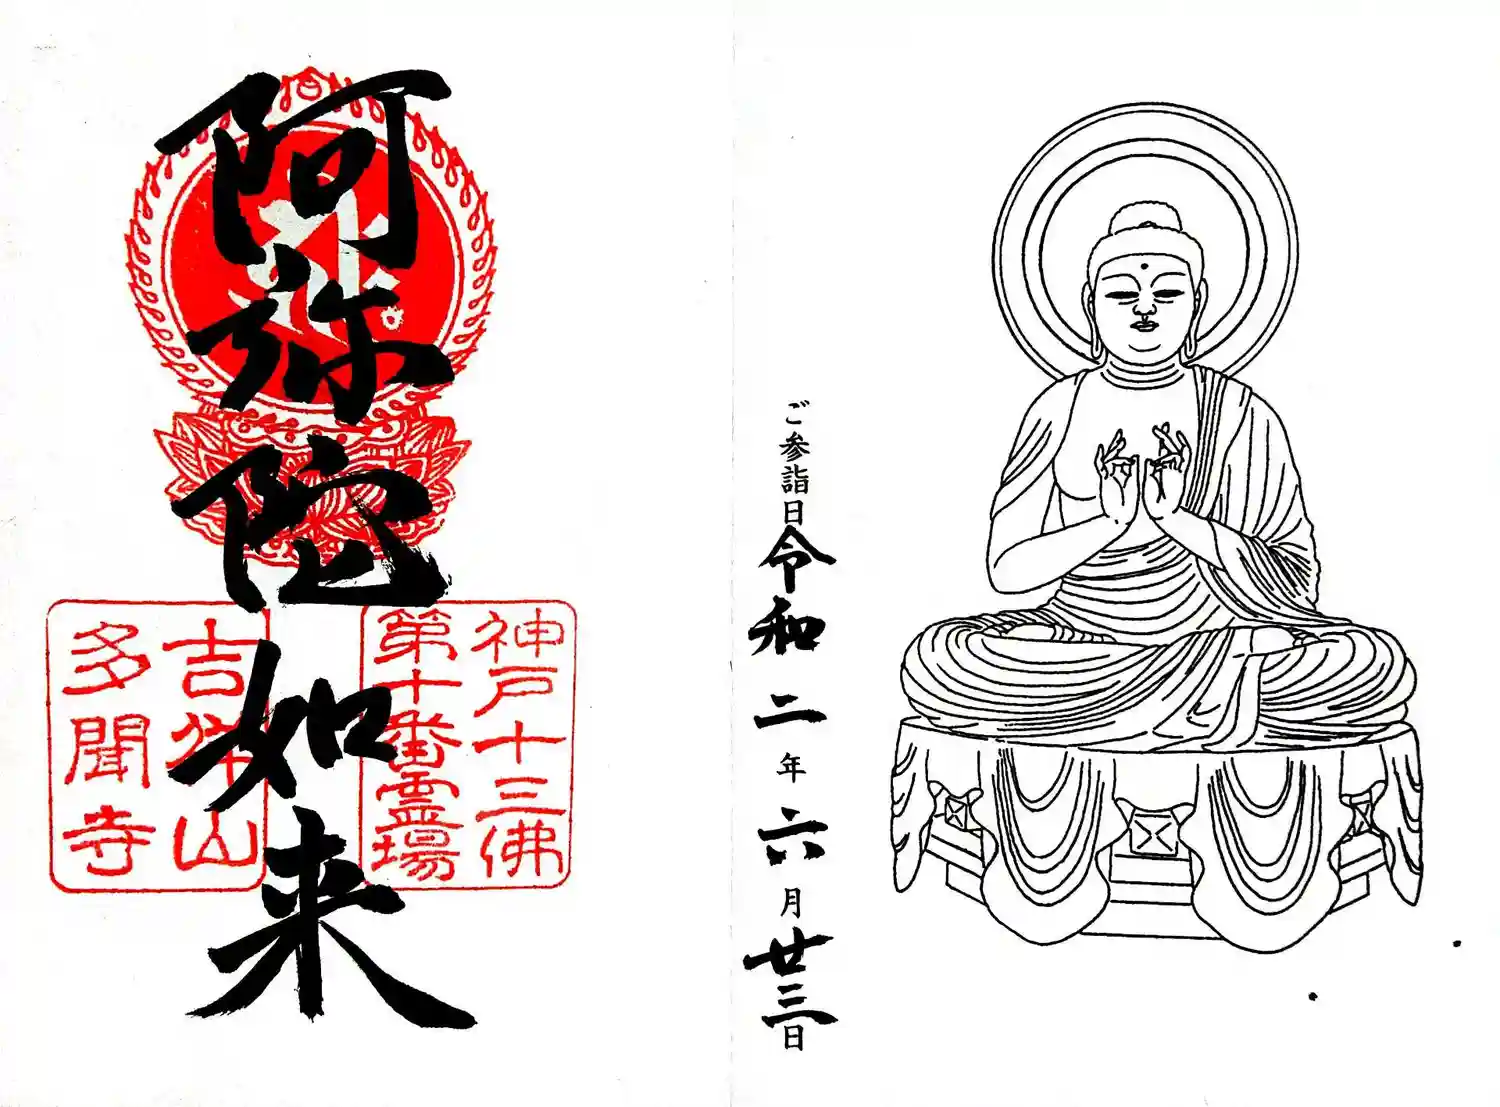 ご参詣日令和二年六月廿三日
阿弥陀如来
神戸十三佛
第十番霊場
吉祥山
多聞寺